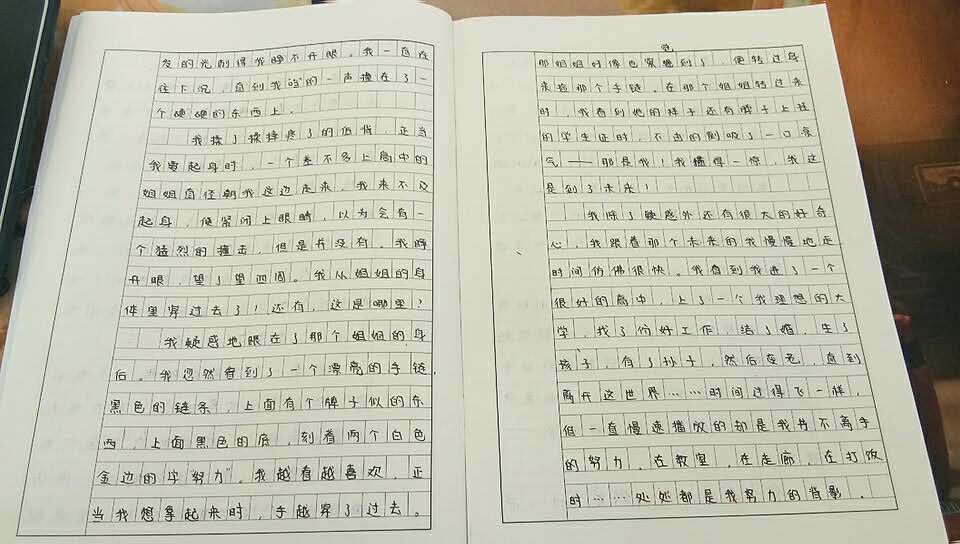 发的光刺得我睁不开眼。我一直在
往下沉，直到我“咚”的一声撞在了一
个硬硬的东西上。
我揉了揉摔疼了的后背，正当
我要起身时，一个差不多上高中的
姐姐直径朝我这边走来，我来不及
起身，便紧闭上眼睛，以为会有一
个猛烈的撞击，但是并没有。我睁
开眼，望了望四周。我从姐姐的身
体里穿过去了！还有，这是哪里？
我疑惑地跟在了那个姐姐的身
后。我忽然看到了一个漂亮的手链，
黑色的链条，上面有个牌子似的东
西，上面黑色的底，刻着两个白色
金边的字“努力”。我越看越喜欢，正
当我想拿起来时，手越穿了过去。
那姐姐好像也察觉到了，便转过身
来捡那个手链。在那个姐姐转过来
时，我看到她的样子还有脖子上挂
的学生证时，不由的倒吸了一口凉
气——那是我！我懂得一惊，我这
是到了未来！
我除了疑惑外还有很大的好奇
心，我跟着那个未来的我慢慢地走，
时间仿佛很快。我看到我进了一个
很好的高中，上了一个我理想的大
学，找了份好工作，结了婚，生了
孩子，有了孙子，然后变老，直到
离开这世界……时间过得飞一样，
但一直慢速播放的却是我书不离手
的努力。在教室，在走廊，在打饭
时……处处都是我努力的背影。